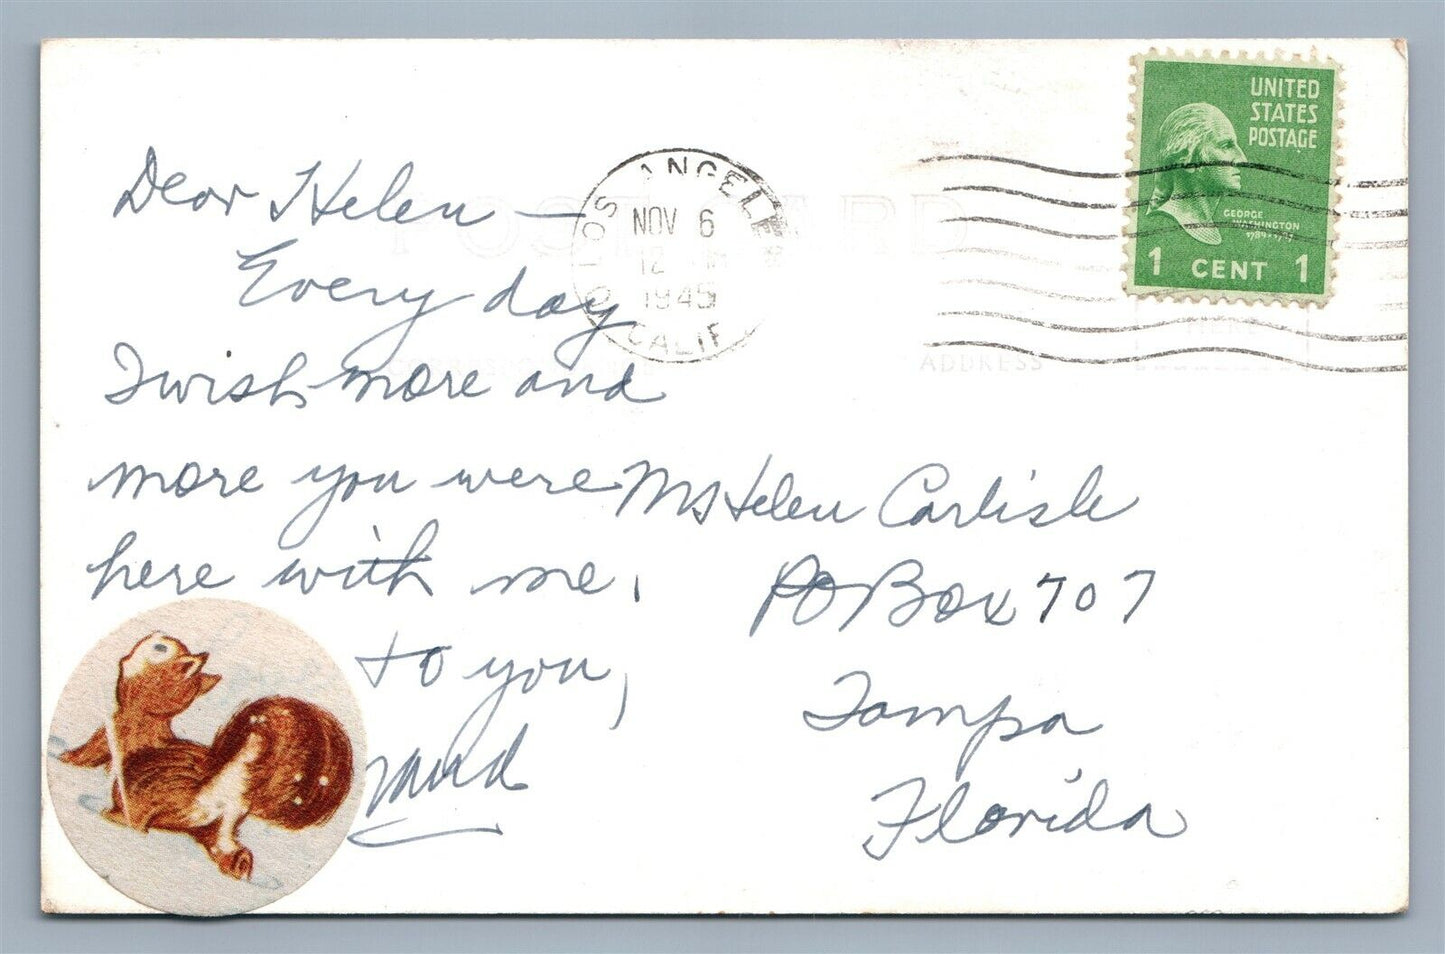 Dear Helen —
Every day
I wish more and
more you were
here with me.
to you,
LOS ANGELES
NOV 6
12 M
1945
CALIF
UNITED
STATES
POSTAGE
GEORGE
WASHINGTON
1789-1797
1 CENT 1
POST CARD
HERE
CORRESPONDENCE
ADDRESS
Ms Helen Carlisle
PO Box 707
Tampa
Florida